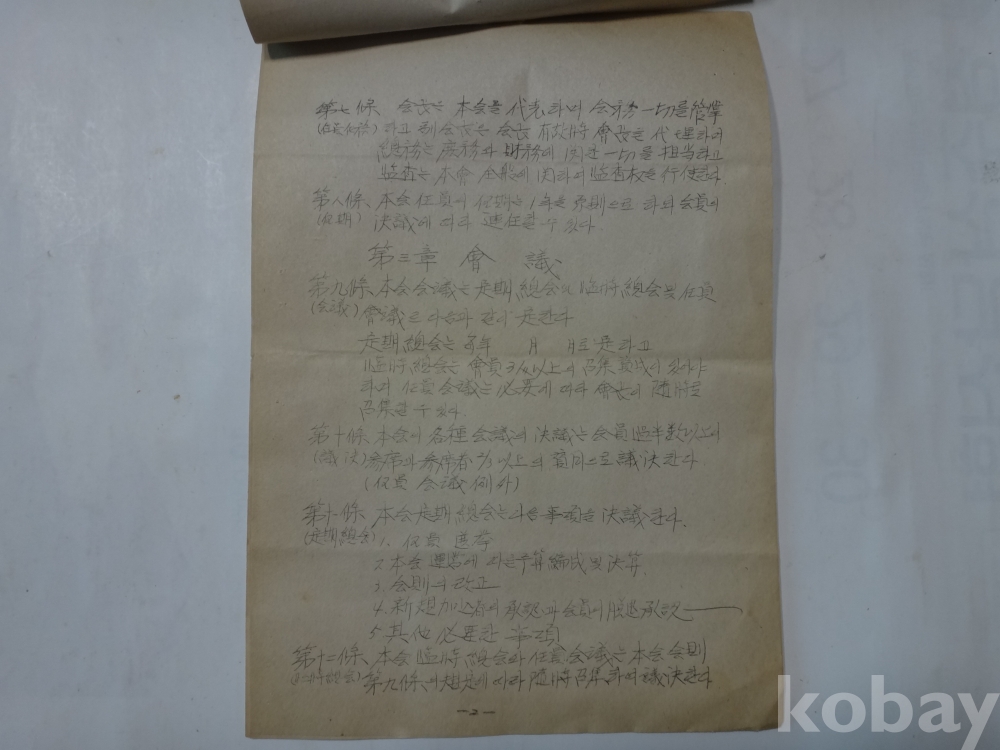 第七條、会長는 本会를 代表하며 会務 一切를 管掌
(任員任務) 하고 副会長는 会長 有故時 會長를 代理하며
總務는 庶務와 財務에 関한 一切를 担当하고
監査는 本會 全般에 関하여 監査权을 行使한다
第八條、本会 任員의 任期는 1年을 原則으로 하되 会員의
(任期) 決議에 따라 連任할 수 있다.
第三章 會 議
第九條、本会 会議는 定期總会와 臨時總会 및 任員
(会議) 會議로 다음과 같이 定한다
定期總会는 每年 月 日로 定하고
臨時總会는 會員 以上의 召集 있어야
하며 任員会議는 必要에 따라 會長이 隨時로
召集할 수 있다.
第十條、本会의 各種 会議의 決議는 会員 過半数以上의
(議決) 參席과 參席者 2/3 以上의 賛同으로 議決한다.
(任員 会議 例外)
第十一條、本会 定期總会는 다음 事項을 決議한다.
(定期總会) 1. 任員 選挙
2. 本会 運営에 따른 予算 編成 및 決算.
3. 会則의 改正
4. 新規加入者의 承認과 会員의 脫退 承認
5. 其他 必要한 事項
第十二條、本会 臨時總会와 任員会議는 本会 会則
(臨時總会) 第九條의 規定에 따라 隨時 召集하여 議決한다
-2-
kobay